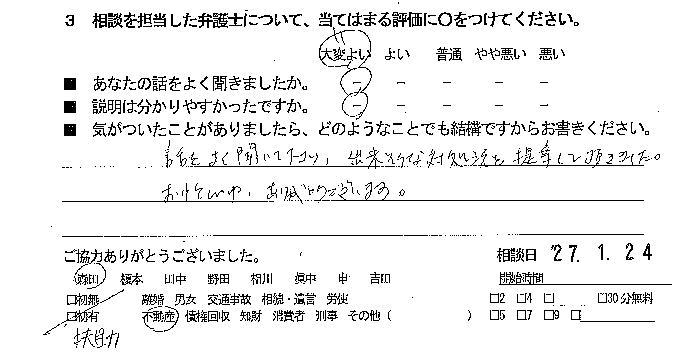 3 相談を担当した弁護士について、当てはまる評価に〇をつけてください。
大変よい よい 普通 やや悪い 悪い
■ あなたの話をよく聞きましたか。 － － － － －
■ 説明は分かりやすかったですか。 － － － － －
■ 気がついたことがありましたら、どのようなことでも結構ですからお書きください。
話をよく聞いて下さり、出来そうな対処法を提案して頂きました。
ありがとうございます。
ご協力ありがとうございました。
相談日 '27. 1. 24
森田 榎本 田中 野田 相川 眞中 申 吉田
開始時間
□初無 離婚 男女 交通事故 相続・遺言 労使
□2 □4 □ □30分無料
□初有 不動産 債権回収 知財 消費者 刑事 その他（ ）
□5 □7 □9 □